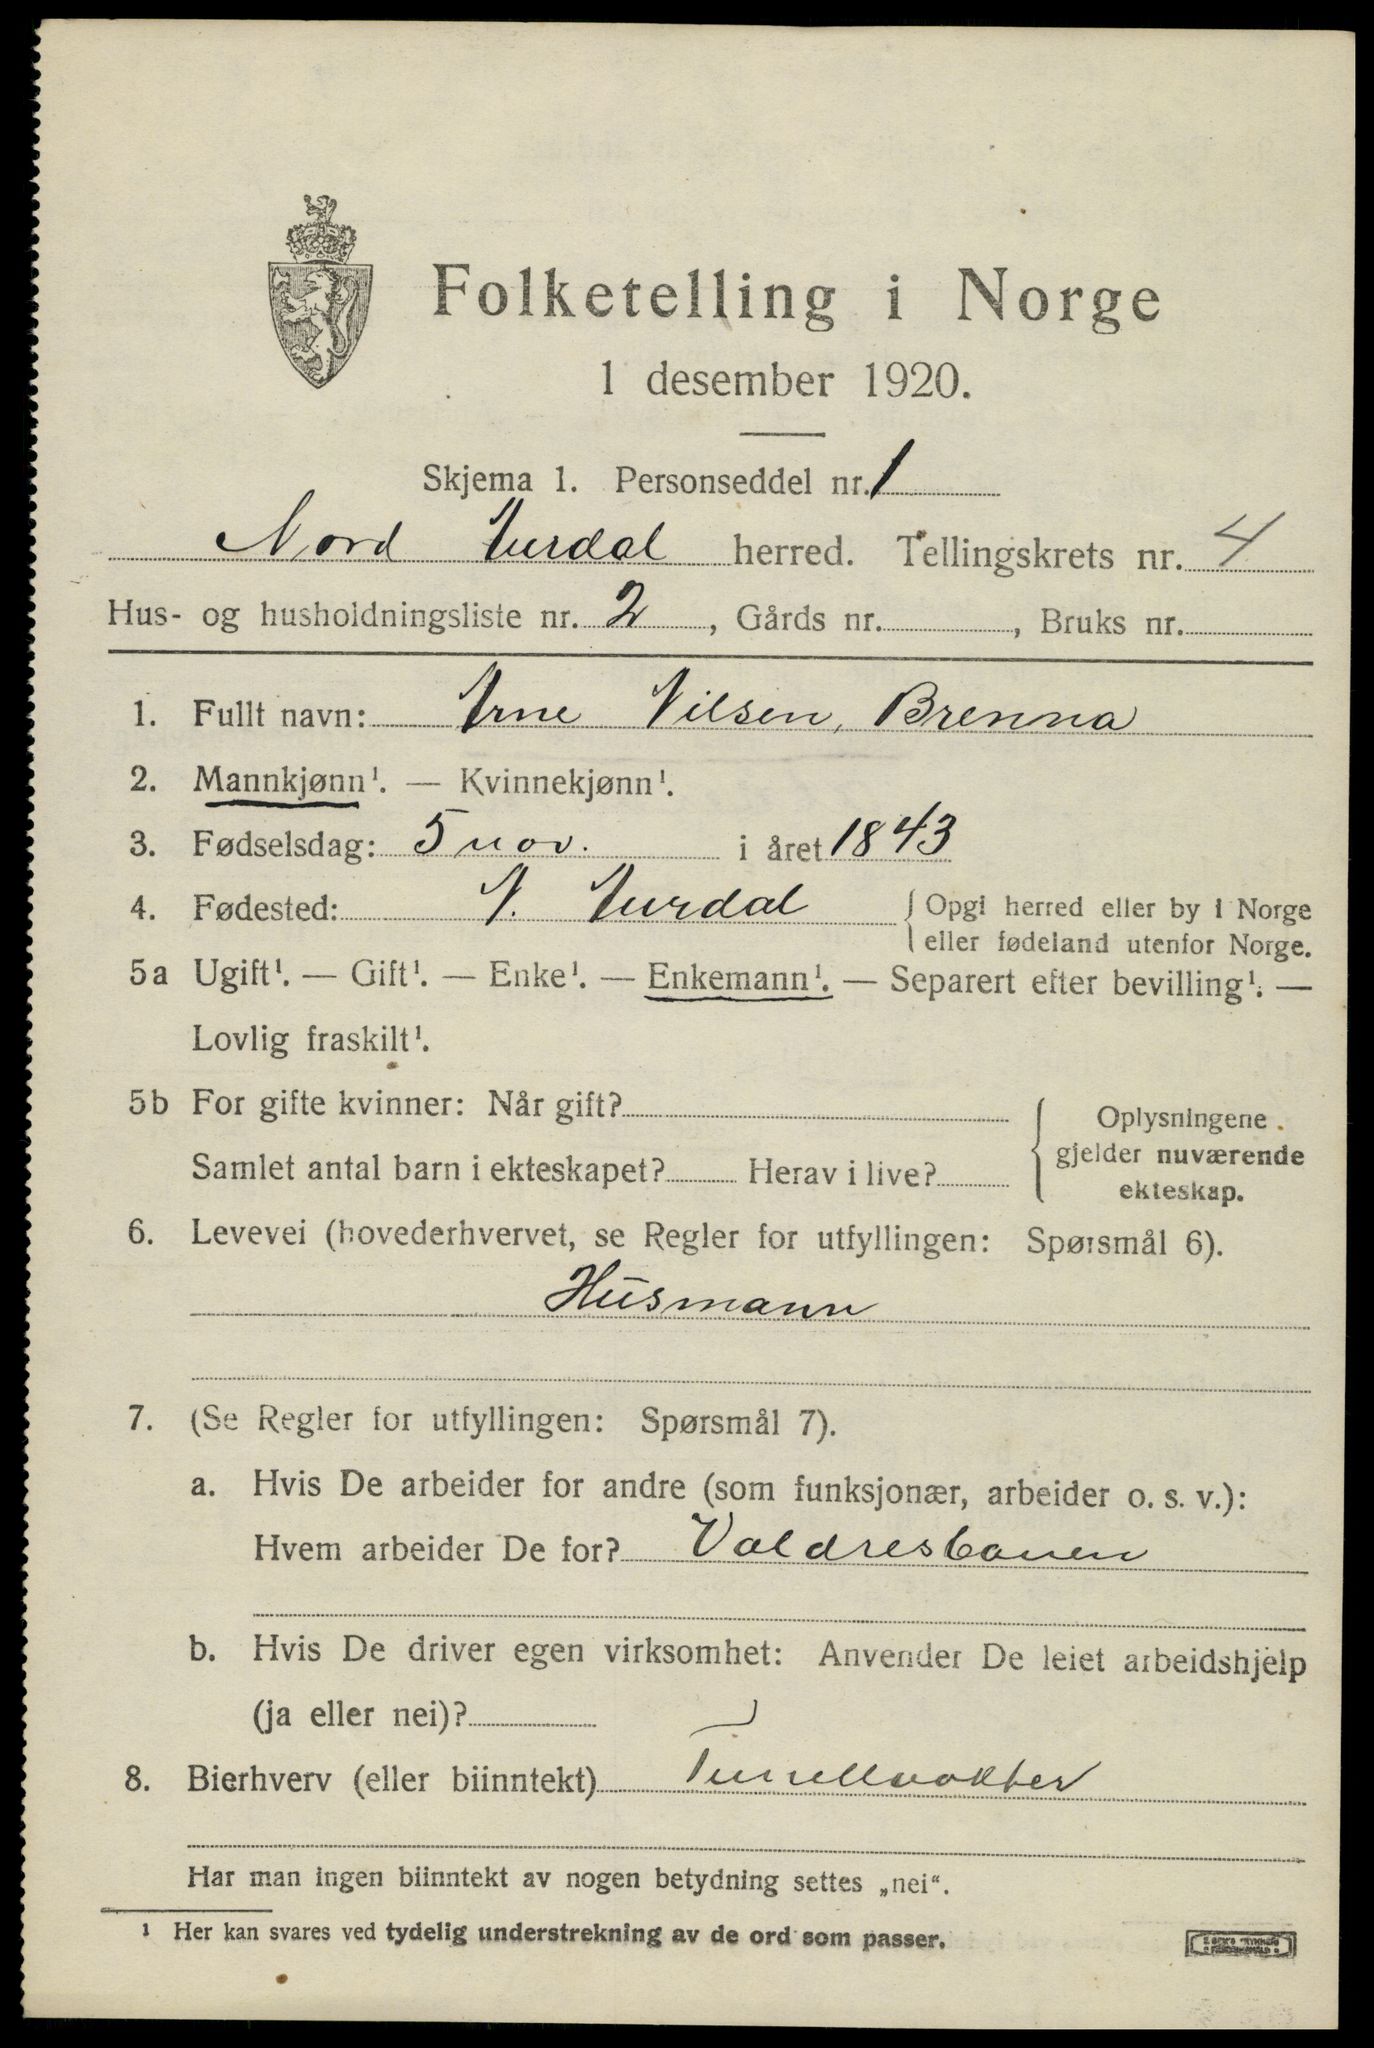 Folketelling i Norge
1 desember 1920.
Skjema 1. Personseddel nr. 1
Nord Aurdal herred. Tellingskrets nr. 4
Hus- og husholdningsliste nr. 2, Gårds nr. , Bruks nr.
1. Fullt navn: Arne Nilsen, Brenna
2. Mannkjønn¹. — Kvinnekjønn¹.
3. Fødselsdag: 5 nov. i året 1843
4. Fødested: N. Aurdal { Opgi herred eller by i Norge
eller fødeland utenfor Norge.
5a Ugift¹. — Gift¹. — Enke¹. — Enkemann¹. — Separert efter bevilling¹. —
Lovlig fraskilt¹.
5b For gifte kvinner: Når gift?
Samlet antal barn i ekteskapet? Herav i live?
Oplysningene
gjelder nuværende
ekteskap.
6. Levevei (hovederhvervet, se Regler for utfyllingen: Spørsmål 6).
Husmann
7. (Se Regler for utfyllingen: Spørsmål 7).
a. Hvis De arbeider for andre (som funksjonær, arbeider o. s. v.):
Hvem arbeider De for? Valdresbanen
b. Hvis De driver egen virksomhet: Anvender De leiet arbeidshjelp
(ja eller nei)?
8. Bierhverv (eller biinntekt) Tunellvokter
Har man ingen biinntekt av nogen betydning settes „nei“.
¹ Her kan svares ved tydelig understrekning av de ord som passer.